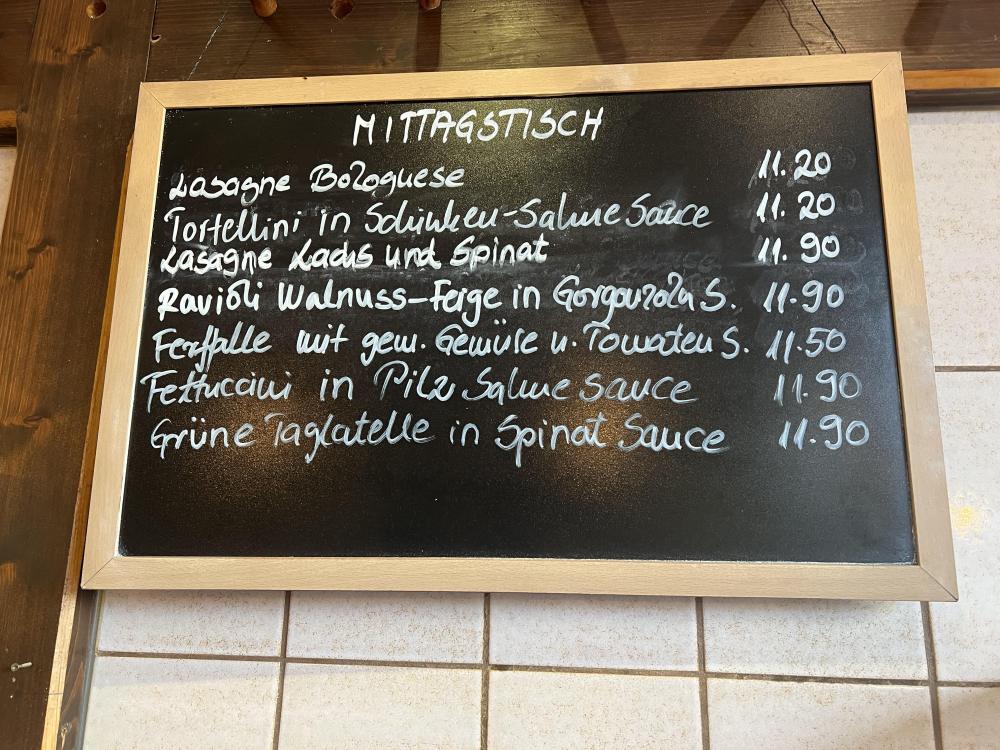 MITTAGSTISCH
Lasagne Bolognese 11.20
Tortellini in Schinken-Sahne Sauce 11.20
Lasagne Lachs und Spinat 11.90
Ravioli Walnuss-Feige in Gorgonzola S. 11.90
Farfalle mit gem. Gemüse u. Tomaten S. 11.50
Fettuccini in Pilz Sahne Sauce 11.90
Grüne Taglatelle in Spinat Sauce 11.90